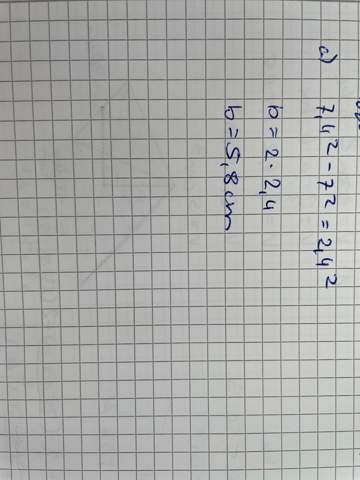 a) 7,4² - 7² = 2,4²
b = 2 · 2,4
b = 5,8 cm